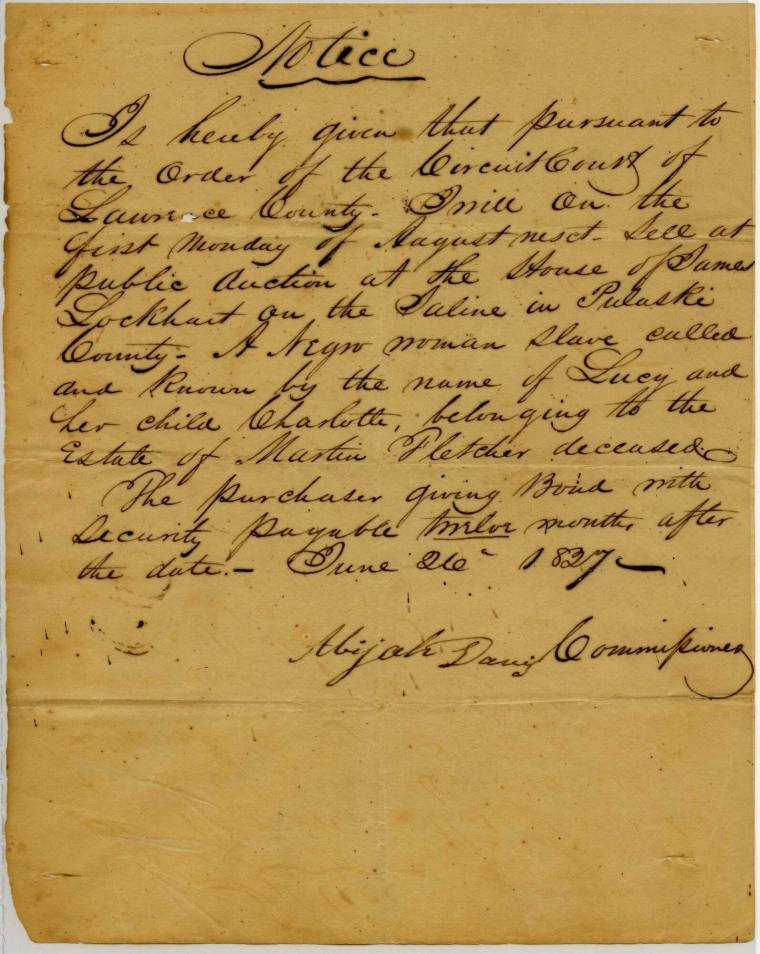 Notice
Is hereby given that pursuant to
the Order of the Circuit Court of
Lawrence County. I will On the
first Monday of August next. Sell at
public Auction at the House of James
Lockhart on the Saline in Pulaski
County. A Negro woman slave called
and Known by the name of Lucy and
her child Charlotte, belonging to the
Estate of Martin Fletcher deceased
The purchaser giving Bond with
Security payable twelve months after
the date. - June 26 1827
Abijah Davis Commissioner